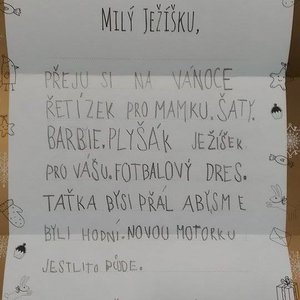 MILÝ JEŽÍŠKU,
PŘEJU SI NA VÁNOCE
ŘETÍZEK PRO MAMKU. ŠATY.
BARBIE. PLYŠÁK JEŽIŠEK
PRO VÁŠU. FOTBALOVÝ DRES.
TAŤKA BYSI PŘÁL ABYSME
BYLI HODNÍ. NOVOU MOTORKU
JESTLITO PŮDE.